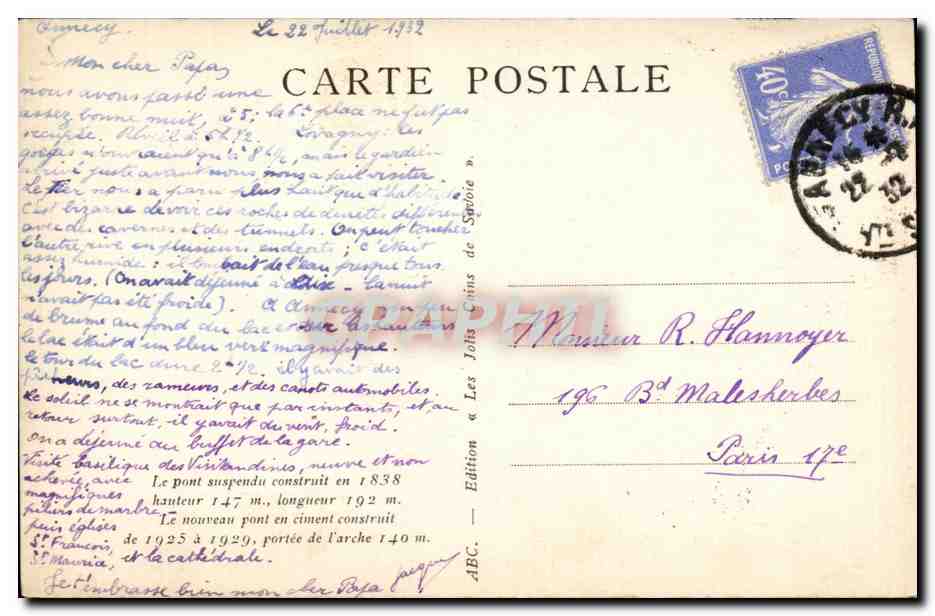 Annecy. Le 22 Juillet 1932
Mon cher Papa,
nous avons passé une
assez bonne nuit, à 5 : la 6e place ne fut pas
occupée. Réveil à 5h 1/2. Lovagny : les
gorges n'ouvraient qu'à 8h 1/2, mais le gardien
arrivé juste avant nous, nous a fait visiter.
Le Fier nous a paru plus haut que d'habitude
c'est bizarre de voir ces roches de denettes différentes
avec des cavernes et des tunnels. On peut toucher
l'autre rive en plusieurs endroits ; c'était
assez humide : il tombait de l'eau presque tous
les jours. (On avait déjeuné à Aix - la nuit
n'avait pas été froide). A Annecy un peu
de brume au fond du lac et sur les hauteurs
le lac était d'un bleu vert magnifique.
le tour du lac dure 2h 1/2. il y avait des
pêcheurs, des rameurs, et des canots automobiles.
Le soleil ne se montrait que par instants, et, au
retour surtout, il y avait du vent, froid.
On a déjeuné au buffet de la gare.
Visite basilique des Visitandines, neuve et non
achevée, avec
magnifiques
piliers de marbre -
puis églises
St François,
St Maurice, et la cathédrale.
Je t'embrasse bien mon cher Papa Jacques
CARTE POSTALE
Le pont suspendu construit en 1838
hauteur 147 m., longueur 192 m.
Le nouveau pont en ciment construit
de 1925 à 1929, portée de l'arche 140 m.
ABC. — Edition « Les Jolis Coins de Savoie ».
40c
ANNECY R.P.
22
32
CPAPHIL
Monsieur R. Hannoyer
196 Bd Malesherbes
Paris 17e